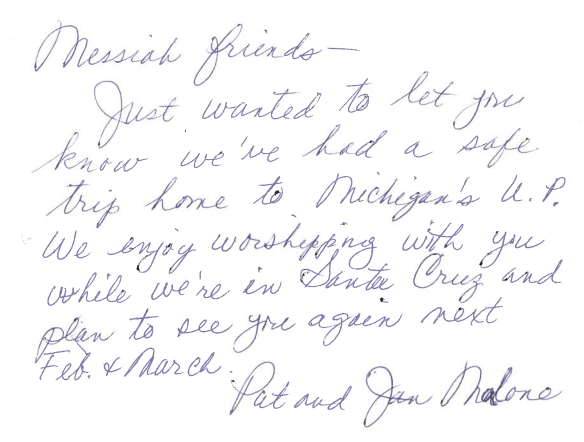 Messiah friends—
Just wanted to let you
know we've had a safe
trip home to Michigan's U.P.
We enjoy worshipping with you
while we're in Santa Cruz and
plan to see you again next
Feb. & March.
Pat and Jan Malone